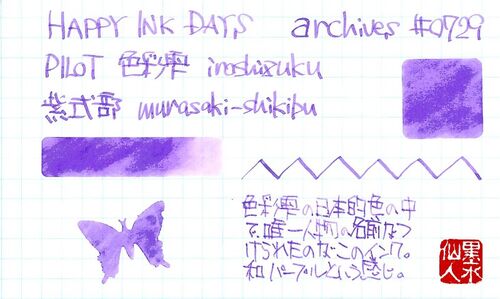 HAPPY INK DAYS archives #0729
PILOT 色彩雫 iroshizuku
紫式部 murasaki-shikibu
色彩雫の日本的色の中
で、唯一人物の名前をつ
けられたのがこのインク。
和パープルという感じ。
墨水
仙人